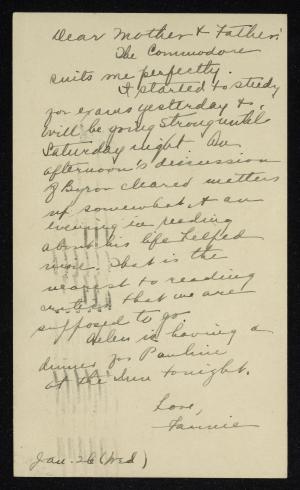 Dear Mother & Father:
The Commodore
suits me perfectly.
I started to study
for exams yesterday &
will be going strong until
Saturday night. An
afternoon's discussion
of Byron cleared matters
up somewhat & an
evening in reading
about his life helped
more. That is the
nearest to reading
critics that we are
supposed to go.
Helen is having a
dinner for Pauline
at the Inn tonight.
Love,
Fannie
Jan. 26 (Wed)